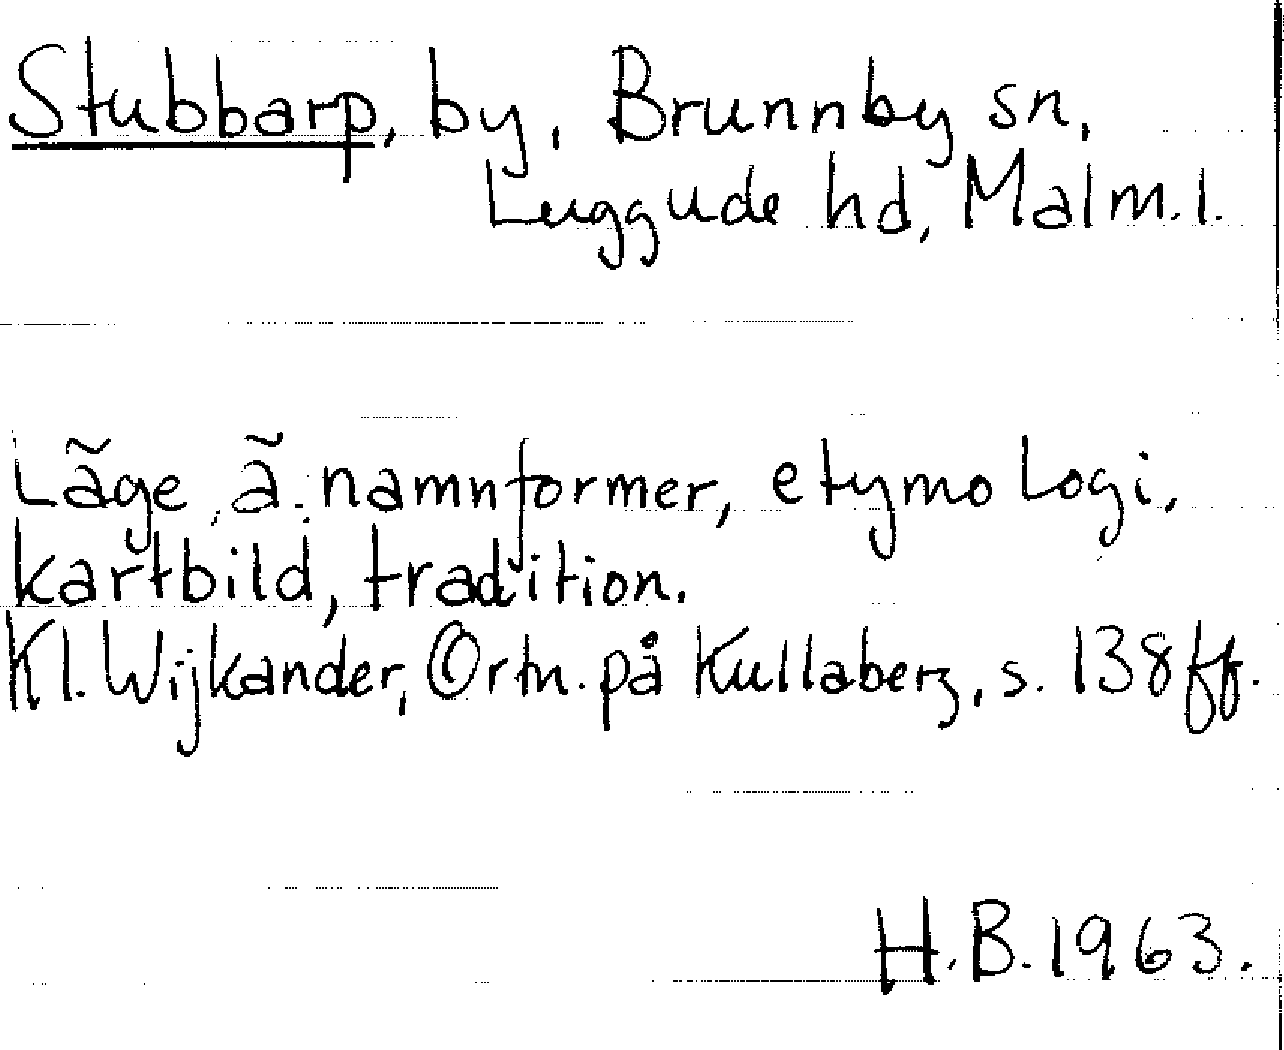 Stubbarp, by, Brunnby sn,
Luggude hd, Malm.l.
Läge, ä. namnformer, etymologi,
kartbild, tradition.
Kl. Wijkander, Ortn. på Kullaberg, s. 138 ff.
H.B. 1963.